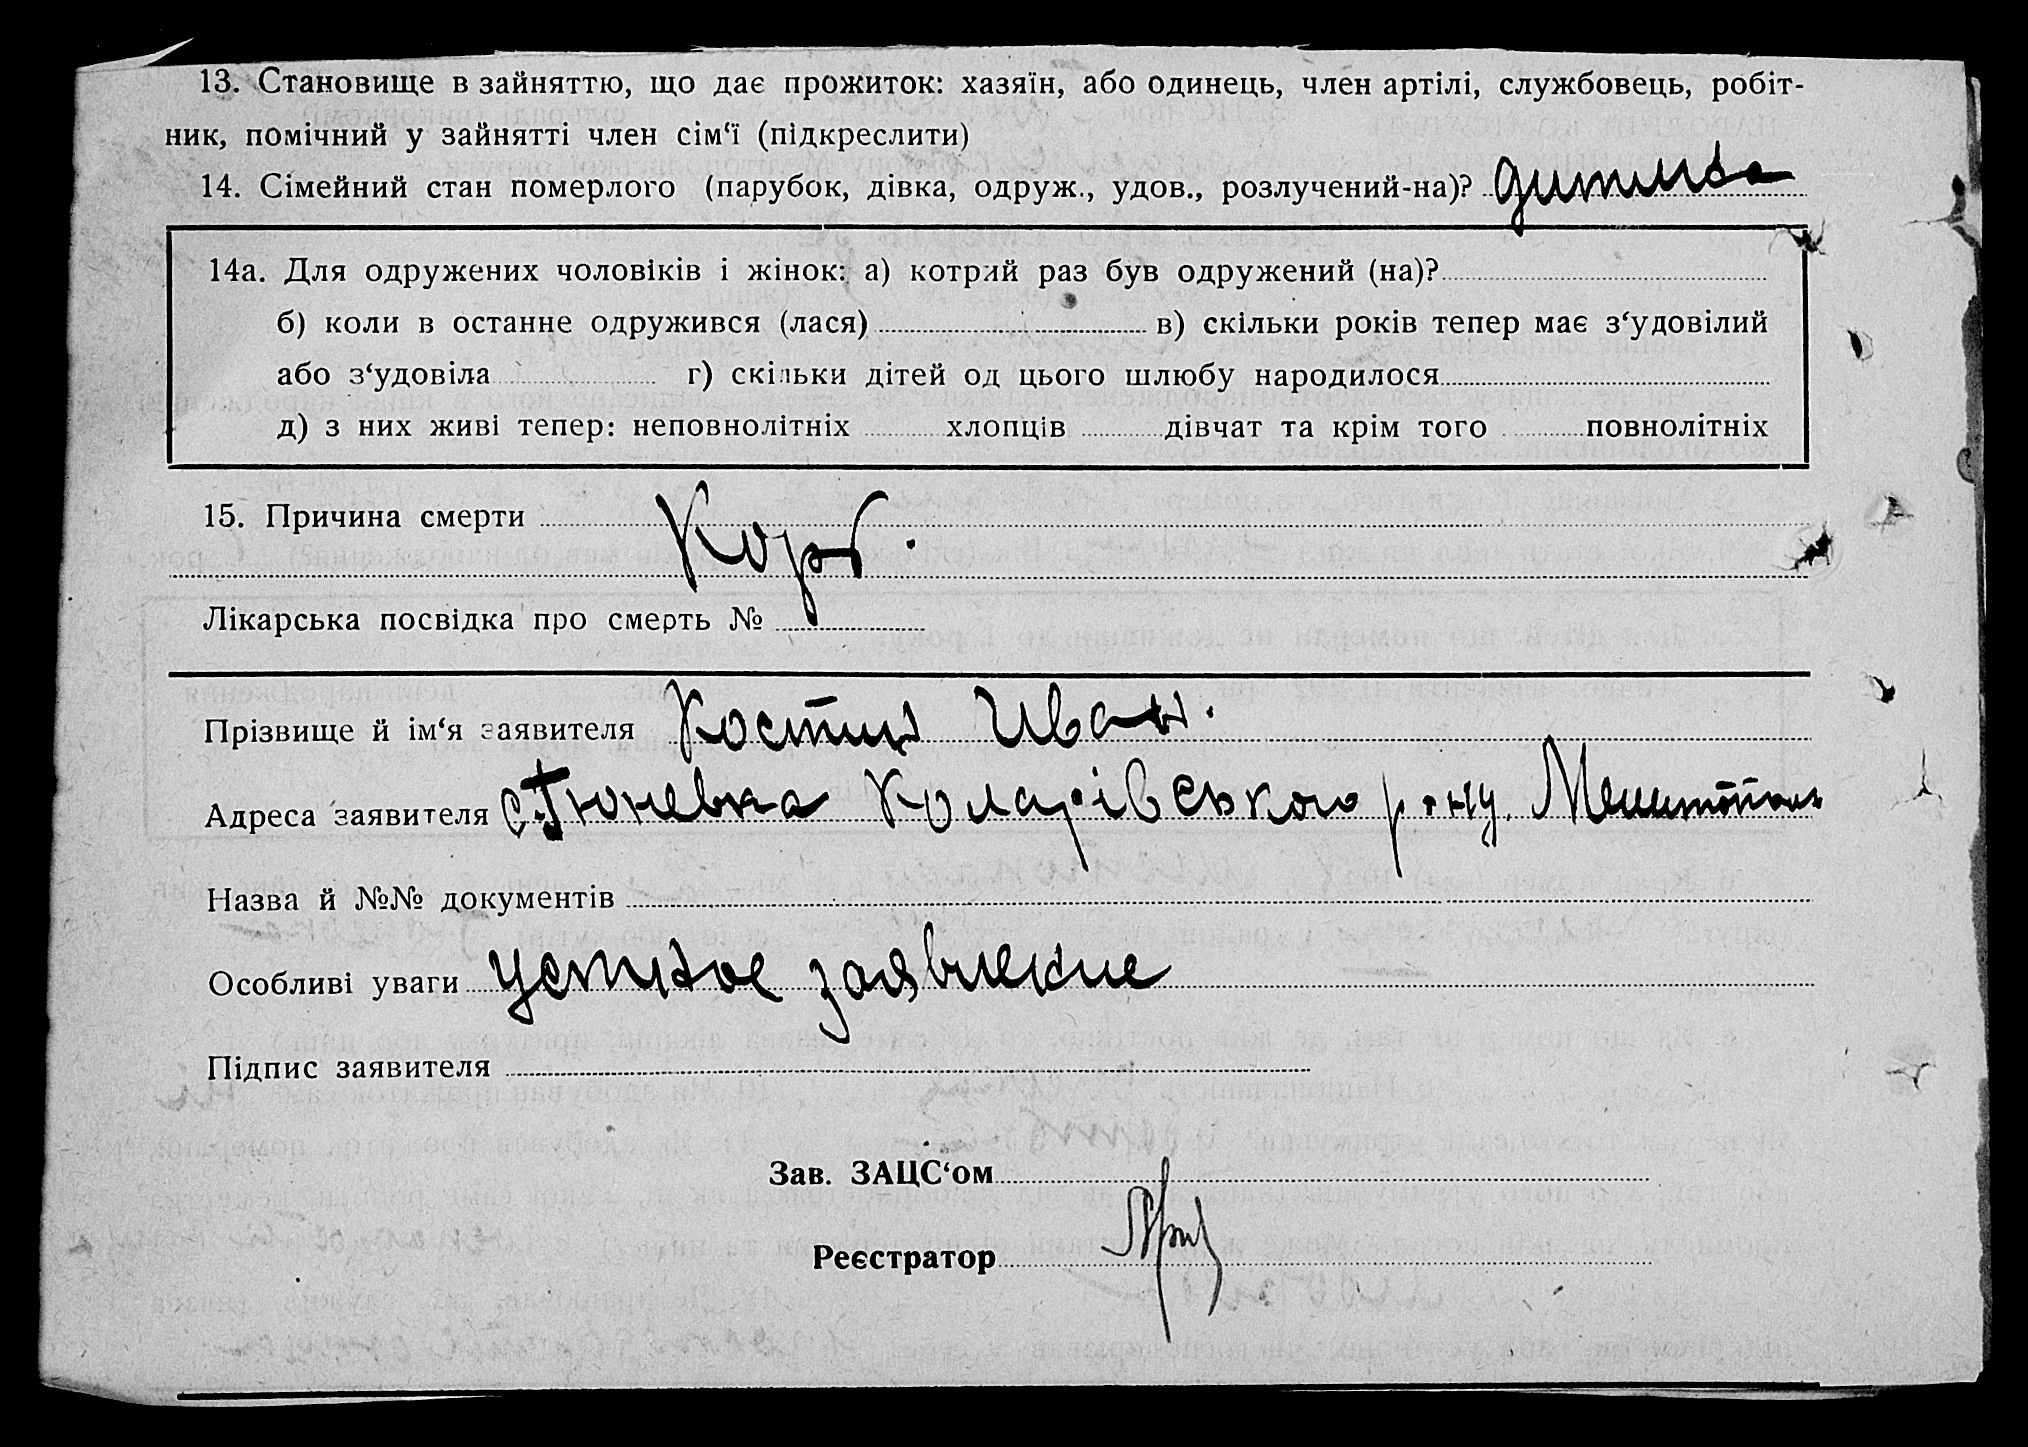 13. Становище в зайняттю, що дає прожиток: хазяїн, або одинець, член артілі, службовець, робіт-
ник, помічний у зайнятті член сім‘ї (підкреслити)
14. Сімейний стан померлого (парубок, дівка, одруж., удов., розлучений-на)? дитина
14а. Для одружених чоловіків і жінок: а) котрий раз був одружений (на)?
б) коли в останне одружився (лася) в) скільки років тепер має з‘удовілий
або з‘удовіла г) скільки дітей од цього шлюбу народилося
д) з них живі тепер: неповнолітніх хлопців дівчат та крім того повнолітніх
15. Причина смерти Корь.
Лікарська посвідка про смерть №
Прізвище й ім‘я заявителя Иван.
Адреса заявителя с. Тюневка Коларівського р-ну,
Назва й №№ документів
Особливі уваги устное заявление
Підпис заявителя
Зав. ЗАЦС‘ом
Реєстратор